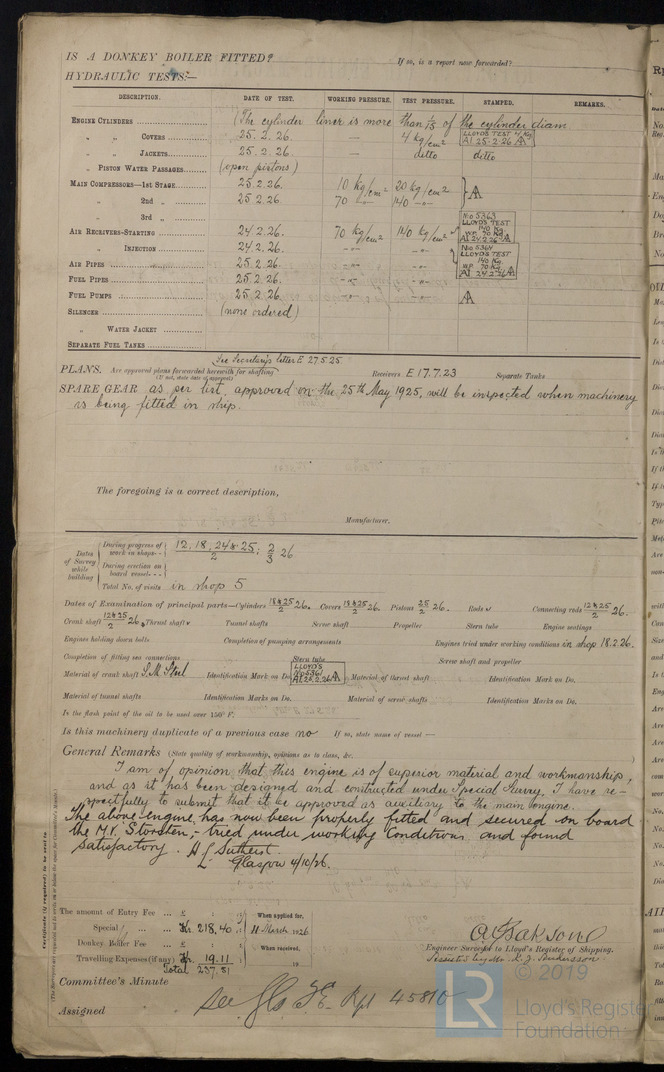 IS A DONKEY BOILER FITTED? If so, is a report now forwarded?
HYDRAULIC TESTS:—
DESCRIPTION. DATE OF TEST. WORKING PRESSURE. TEST PRESSURE. STAMPED. REMARKS.
ENGINE CYLINDERS (The cylinder liner is more than 1/15 of the cylinder diam
" " COVERS 25.2.26. — 4 kg/cm² LLOYD'S TEST 4 Kg
" " JACKETS 25.2.26. — ditto ditto
" PISTON WATER PASSAGES (open pistons)
MAIN COMPRESSORS—1st STAGE 25.2.26. 10 kg/cm² 20 kg/cm²
" 2nd " 25.2.26. 70 -"- 140 -"-
" 3rd "
AIR RECEIVERS—STARTING 24.2.26. 70 kg/cm² 140 kg/cm² No 5363 LLOYD'S TEST 140 Kg WP 70 Kg 24.2.26
" INJECTION 24.2.26. -"- -"- No 5364 LLOYD'S TEST 140 Kg WP 70 Kg 24.2.26
AIR PIPES 25.2.26. -"- -"-
FUEL PIPES 25.2.26. -"- -"-
FUEL PUMPS 25.2.26. -"- -"-
SILENCER (none ordered)
" WATER JACKET
SEPARATE FUEL TANKS
See Secretary's letter E 27.5.25.
PLANS. Are approved plans forwarded herewith for shafting Receivers E 17.7.23 Separate Tanks
(If not, state date of approval)
SPARE GEAR as per list, approved on the 25th May 1925, will be inspected when machinery
is being fitted in ship.
The foregoing is a correct description,
Manufacturer.
Dates of Survey while building
During progress of work in shops - - 12, 18, 24 & 25/2; 2/3 26
During erection on board vessel - - -
Total No. of visits in shop 5
Dates of Examination of principal parts—Cylinders 18 & 25/2 26. Covers 18 & 25/2 26. Pistons 25/2 26. Rods Connecting rods 12 & 25/2 26.
Crank shaft 12 & 25/2 26 Thrust shaft Tunnel shafts Screw shaft Propeller Stern tube Engine seatings
Engines holding down bolts Completion of pumping arrangements Engines tried under working conditions in shop 18.2.26.
Completion of fitting sea connections Stern tube Screw shaft and propeller
Material of crank shaft S.M. Steel Identification Mark on Do. LLOYD'S No 5361 25.2.26 Material of thrust shaft Identification Mark on Do.
Material of tunnel shafts Identification Marks on Do. Material of screw shafts Identification Marks on Do.
Is the flash point of the oil to be used over 150° F.
Is this machinery duplicate of a previous case no If so, state name of vessel —
General Remarks (State quality of workmanship, opinions as to class, &c.
I am of opinion that this engine is of superior material and workmanship,
and as it has been designed and contructed under Special Survey, I have re-
spectfully to submit that it be approved as auxiliary to the main engine.
The above engine has now been properly fitted and secured on board
the M.V. , tried under working conditions and found
satisfactory.
Glasgow 4/10/26.
Certificate (if required) to be sent to
(The Surveyors are requested not to write on or below the space for Committee's Minute.)
The amount of Entry Fee ... £ : : When applied for,
Special ... ... £ Kr. 218,40 : 11 March 1926
Donkey Boiler Fee ... £ : : When received,
Travelling Expenses (if any) £ Kr. 19.11 : 19
Total 237.51
Engineer Surveyor to Lloyd's Register of Shipping.
Committee's Minute
Assigned See Rpt 45810
© 2019
LR
Lloyd's Register
Foundation